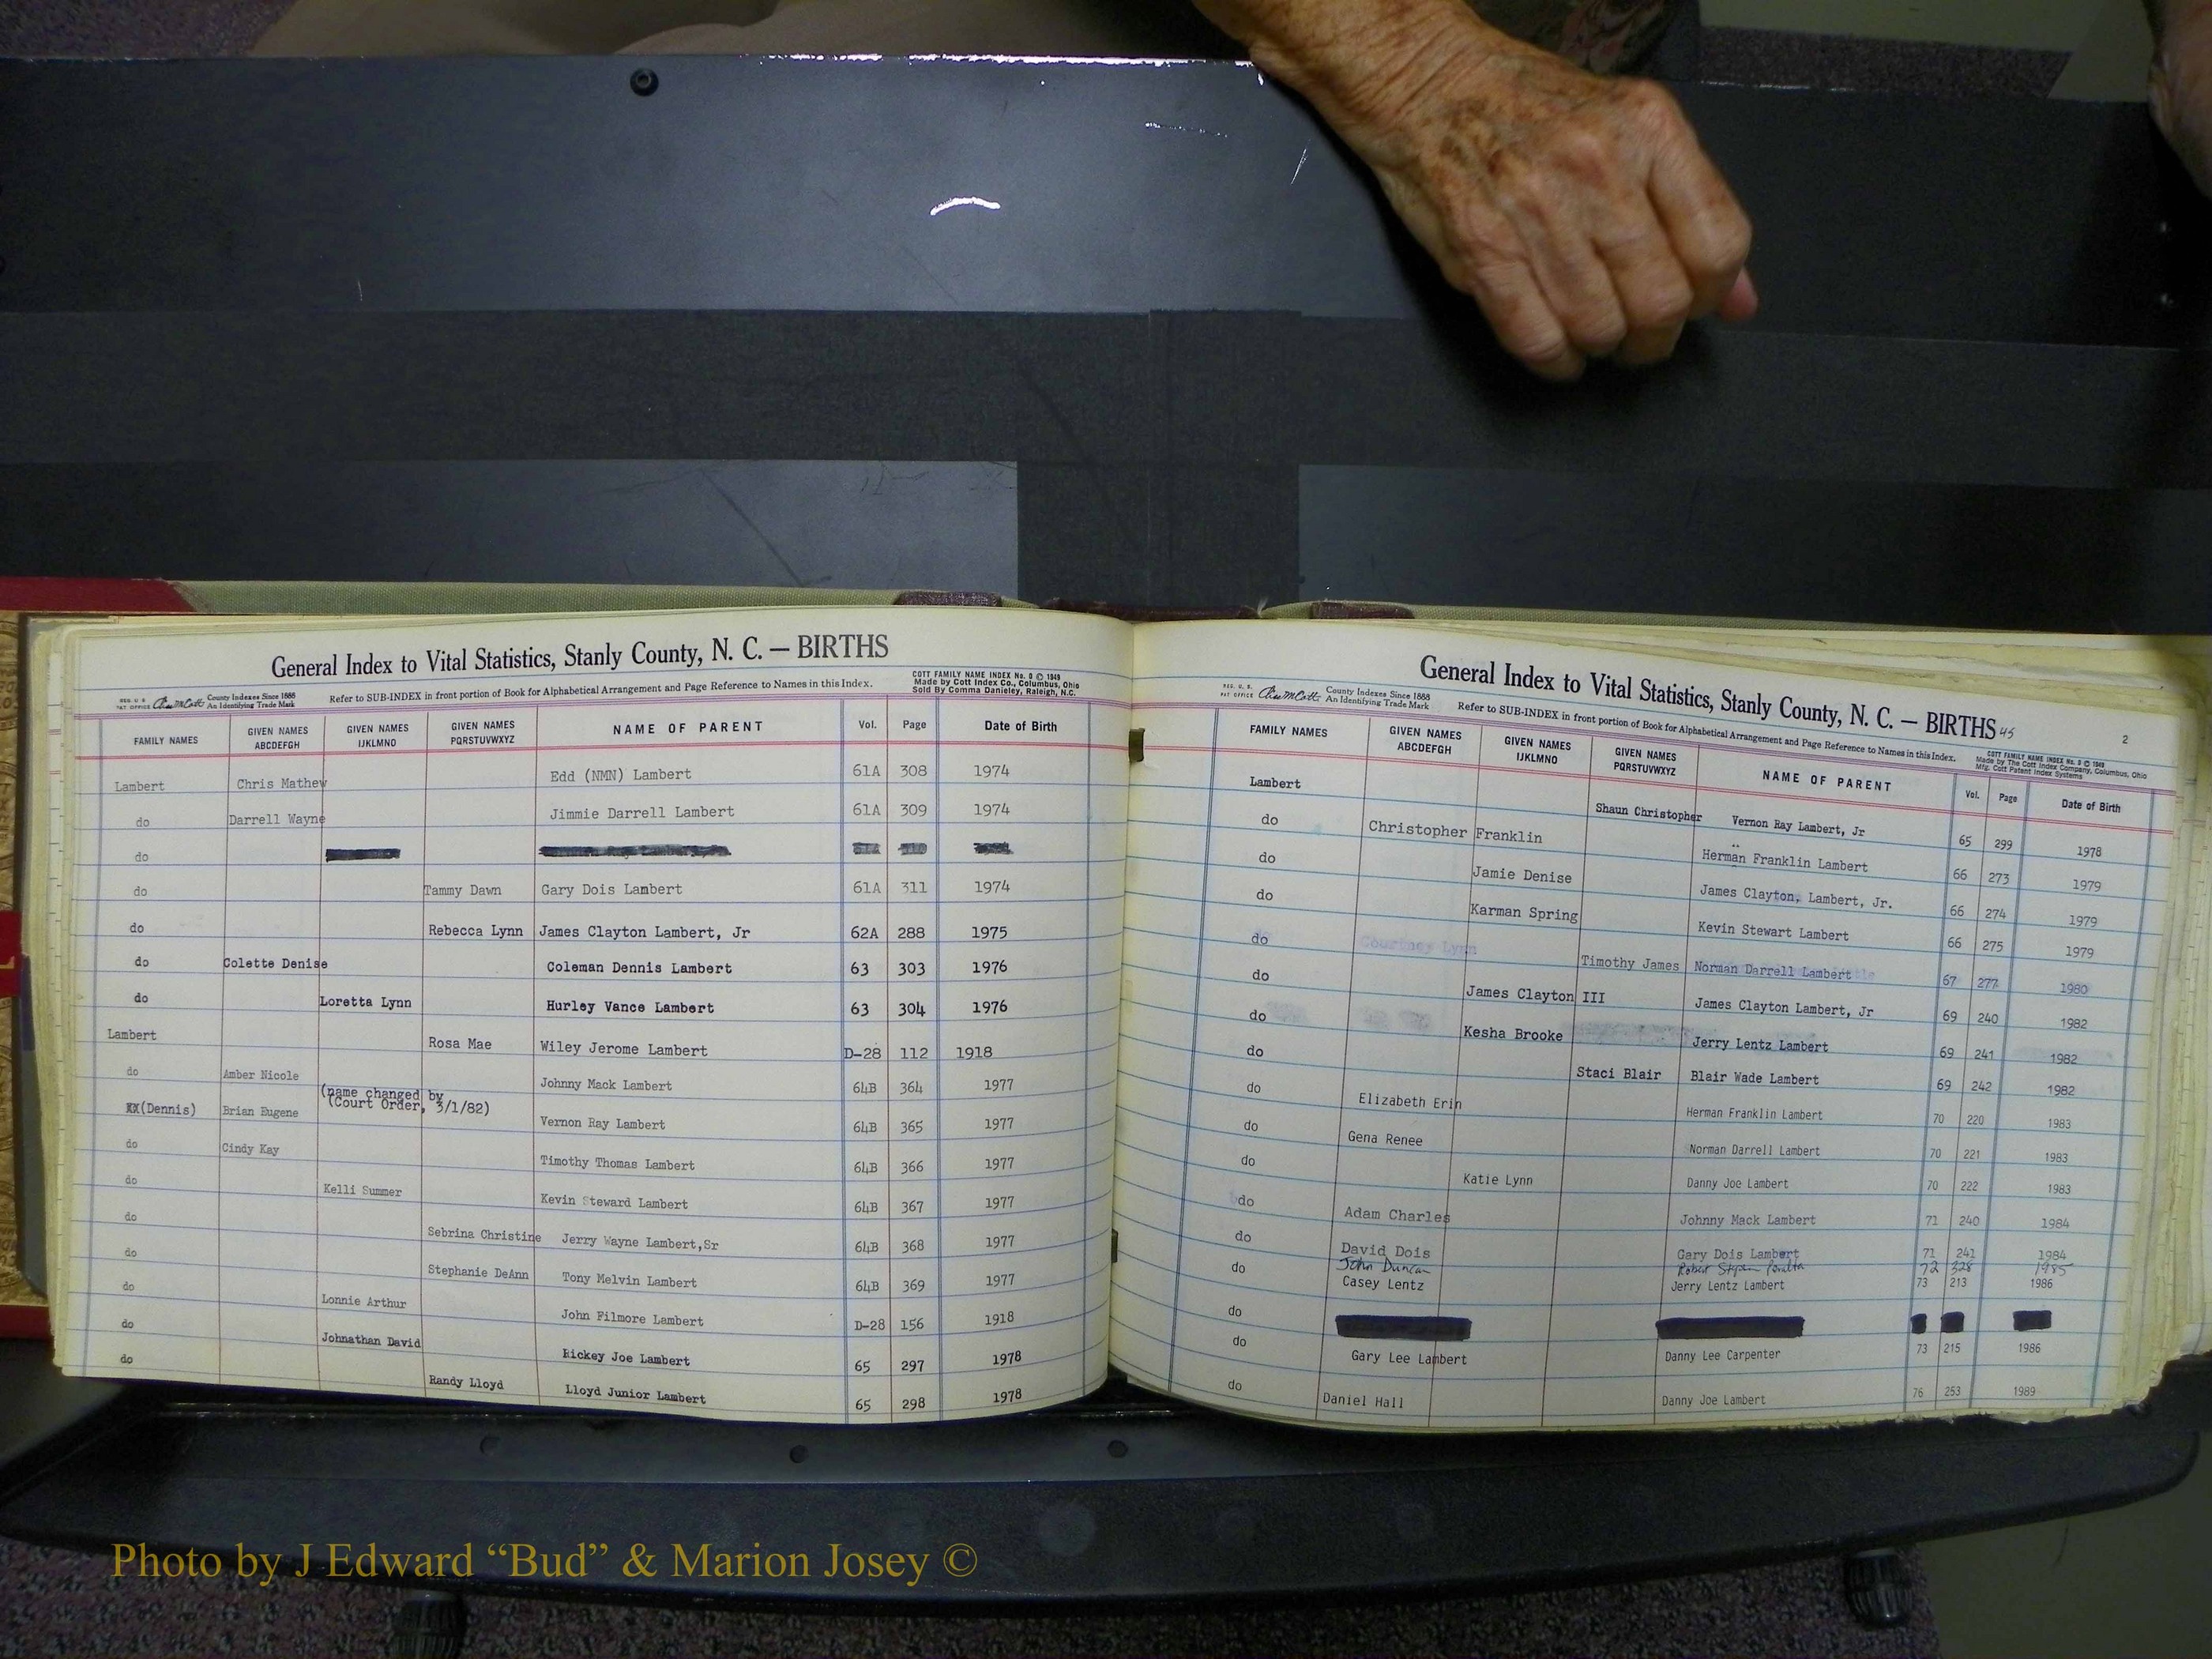 General Index to Vital Statistics, Stanly County, N. C. — BIRTHS
REG. U. S. PAT OFFICE County Indexes Since 1888 An Identifying Trade Mark
Refer to SUB-INDEX in front portion of Book for Alphabetical Arrangement and Page Reference to Names in this Index.
COTT FAMILY NAME INDEX No. 0 © 1949
Made by Cott Index Co., Columbus, Ohio
Sold By Comma Danieley, Raleigh, N.C.
FAMILY NAMES GIVEN NAMES ABCDEFGH GIVEN NAMES IJKLMNO GIVEN NAMES PQRSTUVWXYZ NAME OF PARENT Vol. Page Date of Birth
Lambert Chris Mathew Edd (NMN) Lambert 61A 308 1974
do Darrell Wayne Jimmie Darrell Lambert 61A 309 1974
do
do Tammy Dawn Gary Dois Lambert 61A 311 1974
do Rebecca Lynn James Clayton Lambert, Jr 62A 288 1975
do Colette Denise Coleman Dennis Lambert 63 303 1976
do Loretta Lynn Hurley Vance Lambert 63 304 1976
Lambert Rosa Mae Wiley Jerome Lambert D-28 112 1918
do Amber Nicole Johnny Mack Lambert 64B 364 1977
(name changed by
XX(Dennis) Brian Eugene (Court Order, 3/1/82) Vernon Ray Lambert 64B 365 1977
do Cindy Kay Timothy Thomas Lambert 64B 366 1977
do Kelli Summer Kevin Steward Lambert 64B 367 1977
do Sebrina Christine Jerry Wayne Lambert,Sr 64B 368 1977
do Stephanie DeAnn Tony Melvin Lambert 64B 369 1977
do Lonnie Arthur John Filmore Lambert D-28 156 1918
do Johnathan David Rickey Joe Lambert 65 297 1978
do Randy Lloyd Lloyd Junior Lambert 65 298 1978
General Index to Vital Statistics, Stanly County, N. C. — BIRTHS 45
2
REG. U. S. PAT OFFICE County Indexes Since 1888 An Identifying Trade Mark
Refer to SUB-INDEX in front portion of Book for Alphabetical Arrangement and Page Reference to Names in this Index.
COTT FAMILY NAME INDEX No. 0 © 1949
Made by The Cott Index Company, Columbus, Ohio
Mfg. Cott Patent Index Systems
FAMILY NAMES GIVEN NAMES ABCDEFGH GIVEN NAMES IJKLMNO GIVEN NAMES PQRSTUVWXYZ NAME OF PARENT Vol. Page Date of Birth
Lambert Shaun Christopher Vernon Ray Lambert, Jr 65 299 1978
do Christopher Franklin Herman Franklin Lambert 66 273 1979
do Jamie Denise James Clayton, Lambert, Jr. 66 274 1979
do Karman Spring Kevin Stewart Lambert 66 275 1979
do Timothy James Norman Darrell Lambert 67 277 1980
do James Clayton III James Clayton Lambert, Jr 69 240 1982
do Kesha Brooke Jerry Lentz Lambert 69 241 1982
do Staci Blair Blair Wade Lambert 69 242 1982
do Elizabeth Erin Herman Franklin Lambert 70 220 1983
do Gena Renee Norman Darrell Lambert 70 221 1983
do Katie Lynn Danny Joe Lambert 70 222 1983
do Adam Charles Johnny Mack Lambert 71 240 1984
do David Dois Gary Dois Lambert 71 241 1984
John Duncan Robert Stephen Peralta 72 328 1985
do Casey Lentz Jerry Lentz Lambert 73 213 1986
do
do Gary Lee Lambert Danny Lee Carpenter 73 215 1986
do Daniel Hall Danny Joe Lambert 76 253 1989
Photo by J Edward “Bud” & Marion Josey ©